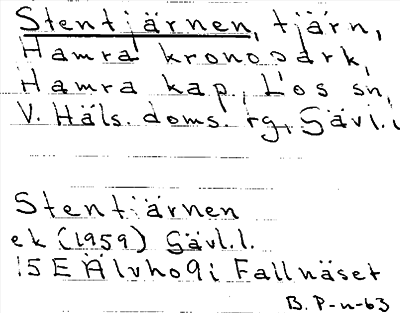 Stentjärnen, tjärn,
Hamra kronopark,
Hamra kap., Los sn,
V. Häls. doms. rg, Gävl. l
Stentjärnen
ek (1959) Gävl. l.
15 E Älvho 9 i Fallnäset
B. P-n-63